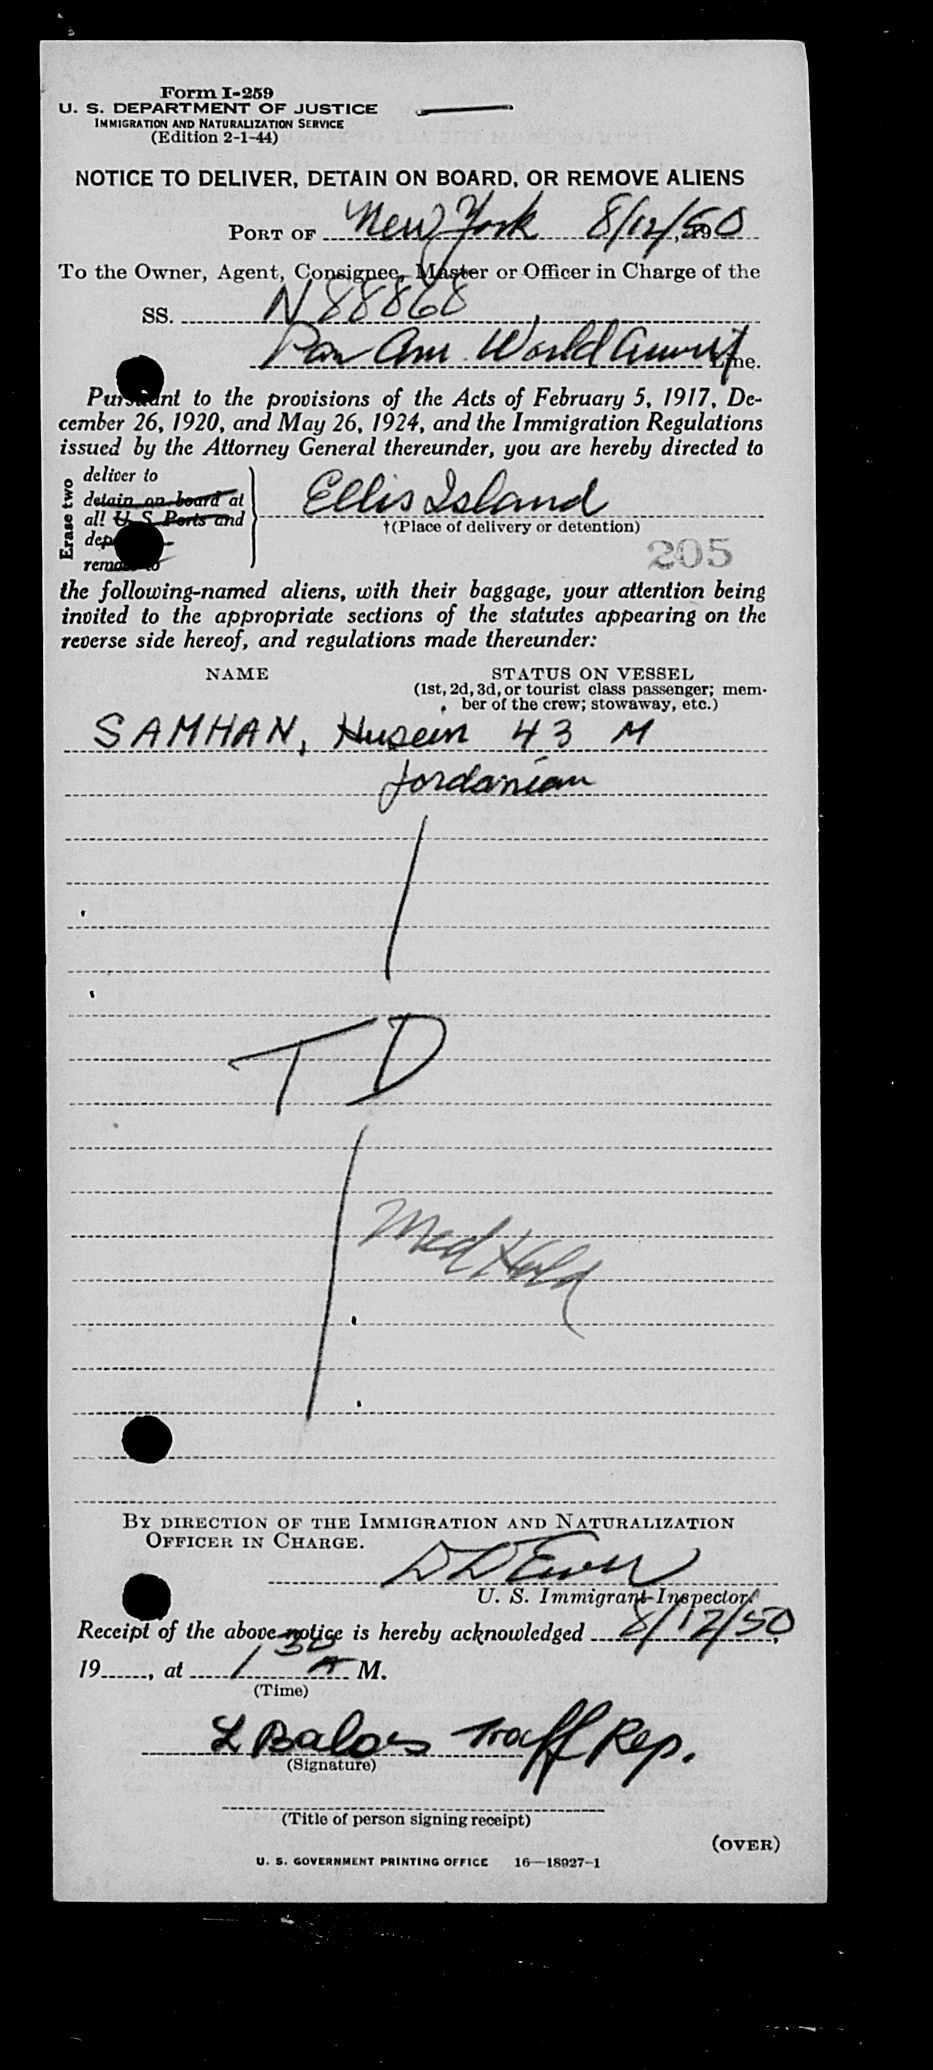 Form I-259
U. S. DEPARTMENT OF JUSTICE
IMMIGRATION AND NATURALIZATION SERVICE
(Edition 2-1-44)
NOTICE TO DELIVER, DETAIN ON BOARD, OR REMOVE ALIENS
PORT OF New York 8/12/50
To the Owner, Agent, Consignee, Master or Officer in Charge of the
SS. N 88868
Pan Am. World Line.
Pursuant to the provisions of the Acts of February 5, 1917, De-
cember 26, 1920, and May 26, 1924, and the Immigration Regulations
issued by the Attorney General thereunder, you are hereby directed to
Erase two
deliver to
detain on board at
all U. S. Ports and
remove to
Ellis Island
†(Place of delivery or detention)
205
the following-named aliens, with their baggage, your attention being
invited to the appropriate sections of the statutes appearing on the
reverse side hereof, and regulations made thereunder:
NAME STATUS ON VESSEL
(1st, 2d, 3d, or tourist class passenger; mem-
ber of the crew; stowaway, etc.)
SAMHAN, Husein 43 M
Jordanian
TD
Med Hold
BY DIRECTION OF THE IMMIGRATION AND NATURALIZATION
OFFICER IN CHARGE.
U. S. Immigrant Inspector.
Receipt of the above notice is hereby acknowledged 8/12/50,
19, at 1 30 A M.
(Time)
Traff Rep.
(Signature)
(Title of person signing receipt)
(OVER)
U. S. GOVERNMENT PRINTING OFFICE 16—18927-1